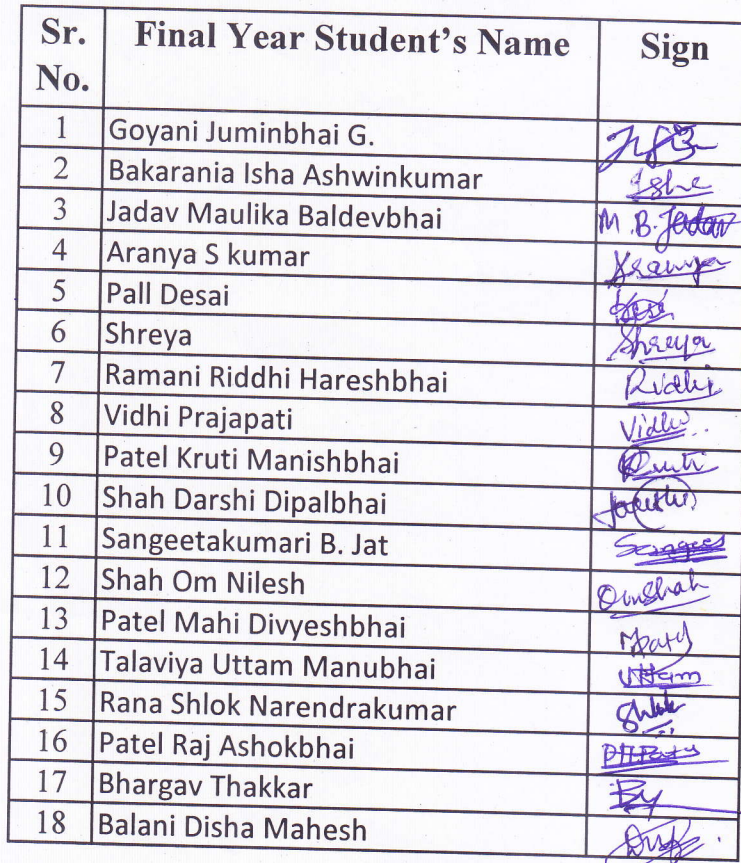 Sr. No. Final Year Student's Name Sign
1 Goyani Juminbhai G.
2 Bakarania Isha Ashwinkumar Isha
3 Jadav Maulika Baldevbhai M.B. Jadav
4 Aranya S kumar
5 Pall Desai
6 Shreya Shreya
7 Ramani Riddhi Hareshbhai Riddhi
8 Vidhi Prajapati Vidhi
9 Patel Kruti Manishbhai Kruti
10 Shah Darshi Dipalbhai
11 Sangeetakumari B. Jat
12 Shah Om Nilesh OmShah
13 Patel Mahi Divyeshbhai
14 Talaviya Uttam Manubhai Uttam
15 Rana Shlok Narendrakumar Shlok
16 Patel Raj Ashokbhai
17 Bhargav Thakkar
18 Balani Disha Mahesh